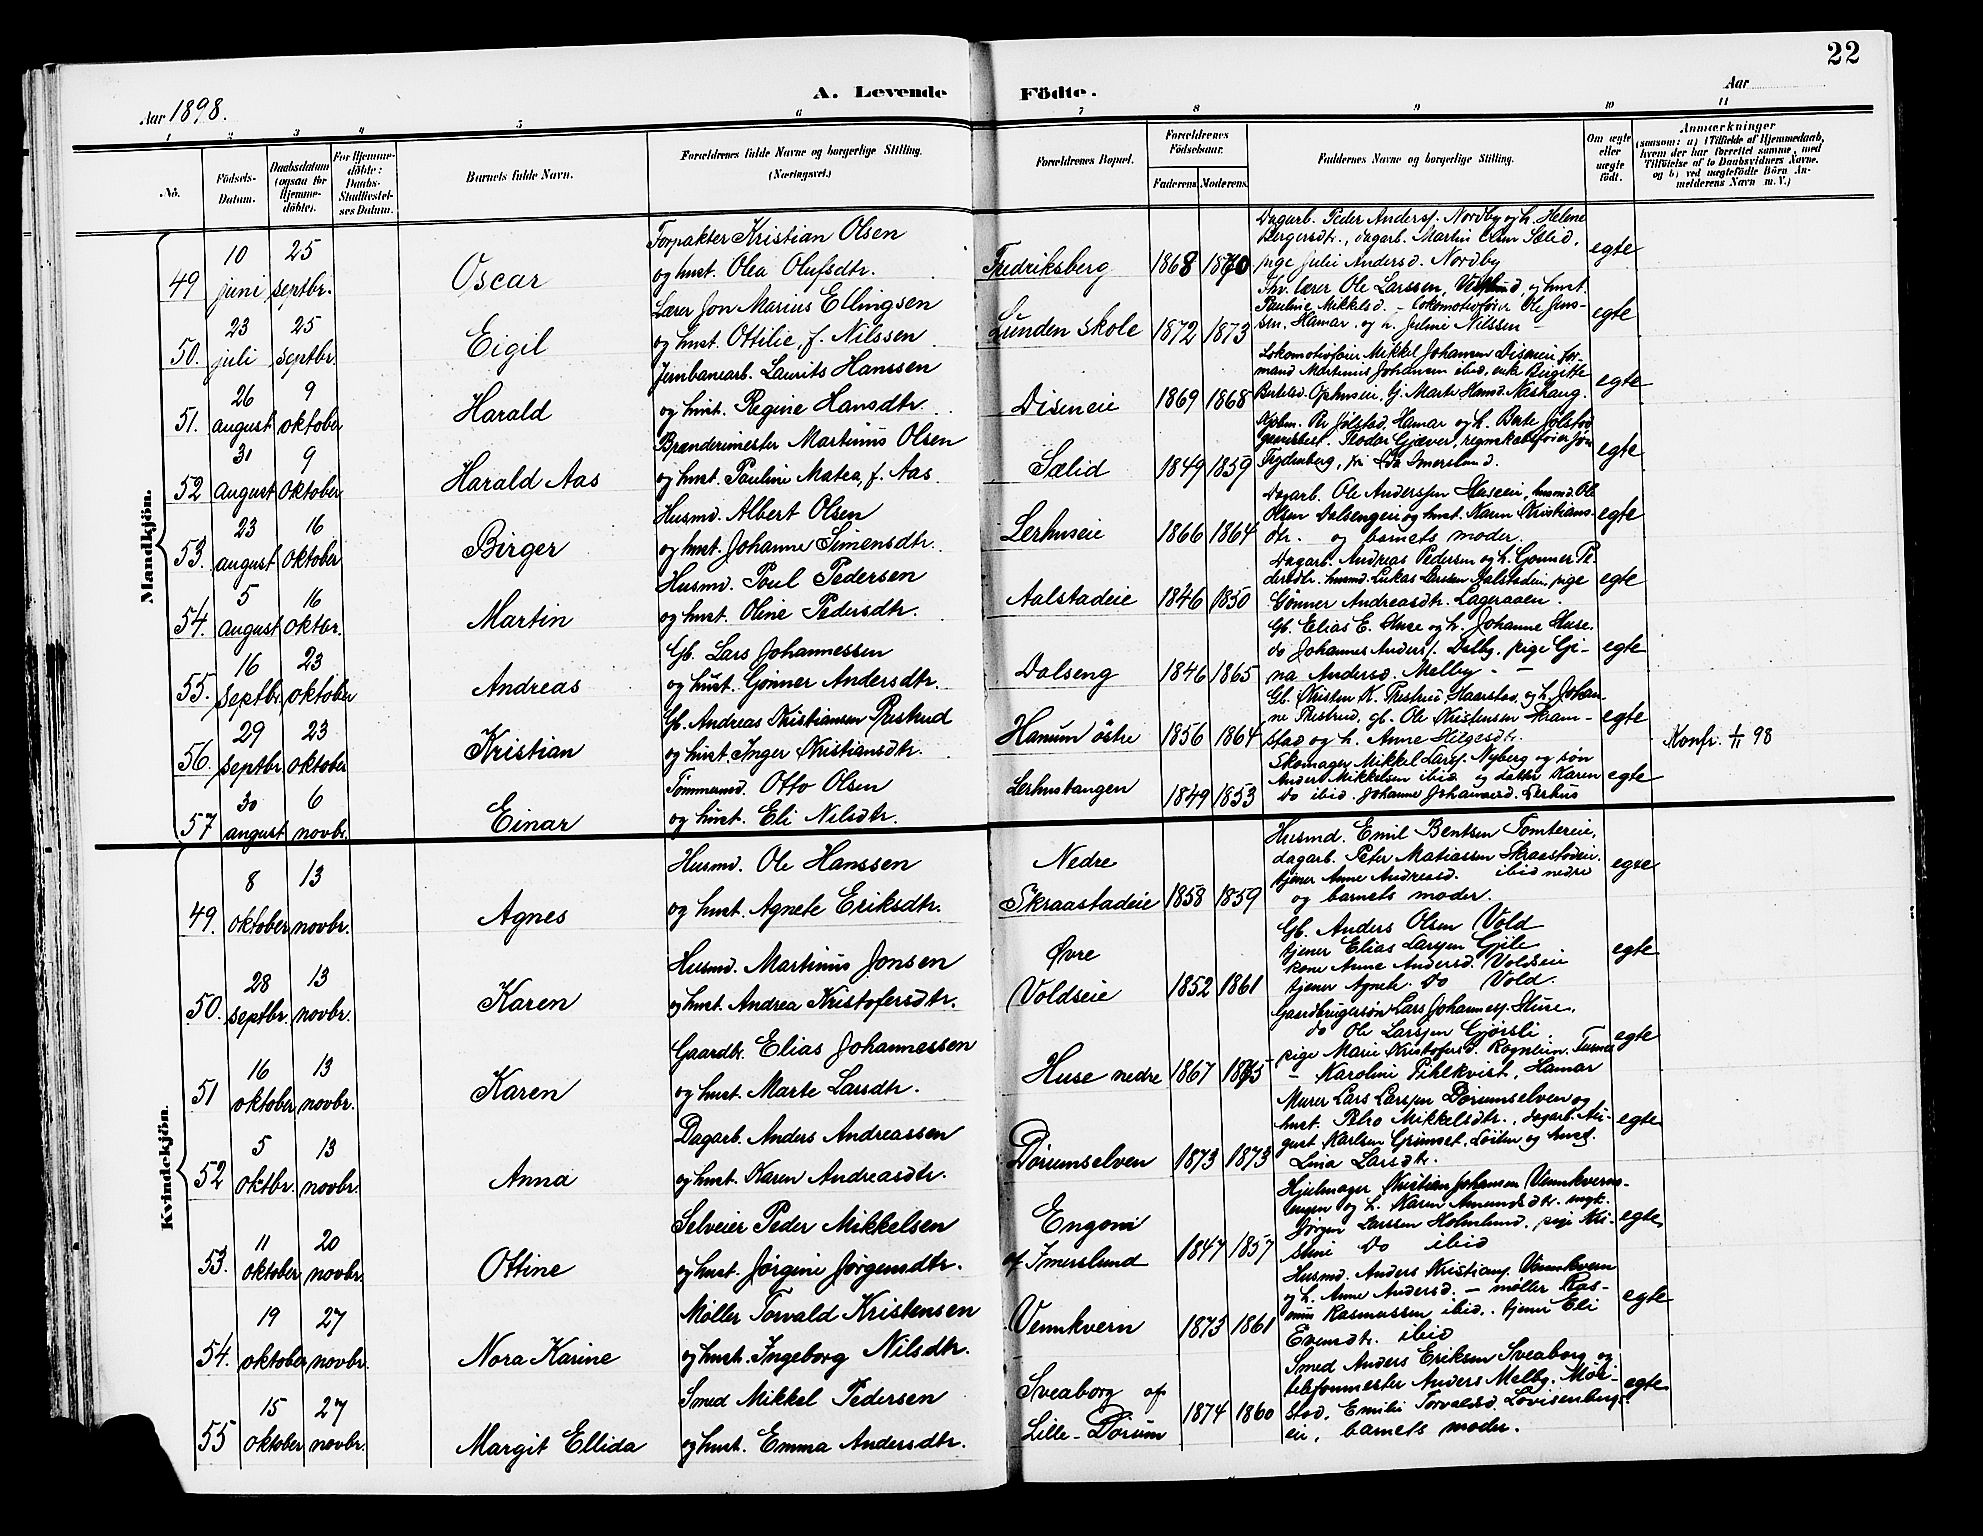 22
Aar 1898.
A. Levende Födte.
Aar
1 2 3 4 5 6 7 8 9 10 11
No.
Födsels-Datum.
Daabsdatum (ogsaa for Hjemme-döbte).
For Hjemme-döbte: Daabs-Stadfæstel-ses Datum.
Barnets fulde Navn.
Forældrenes fulde Navne og borgerlige Stilling. (Næringsvei.)
Forældrenes Bopæl.
Forældrenes Födselsaar.
Faderens. Moderens.
Faddernes Navne og borgerlige Stilling.
Om ægte eller uægte födt.
Anmærkninger
(saasom: a) i Tilfælde af Hjemmedaab, hvem der har forrettet samme, med Tilföielse af to Daabsvidners Navne. og b) ved uægtefödte Börn An-melderens Navn m. V.)
Mandkjön.
49 10 juni 25 septbr. Oscar
Forpakter Kristian Olsen
og hust. Olea Olufsdtr.
Fredriksberg 1868 1870
Dagarb. Peder Anderss. Nordby og h. Helene
Bergersdtr., dagarb. Martin Olsen Sælid,
pige Julie Andersd. Nordby
egte
50. 23 juli 25 septbr. Eigil
Lærer Jon Marius Ellingsen
og hust. Ottilie, f. Nilssen
Lunden skole 1872 1873
lærer Ole Larssen, og hust.
Pauline Mikkelsd. – lokomotivfører Ole Jens-
sen, Hamar, og h. Juline Nilssen –
egte
51. 26 august 9 oktober Harald
Jernbanearb. Laurits Hanssen
og hust. Regine Hansdtr.
Diseneie 1869 1868
Lokomotivfører Mikkel Johansen Diseneie, for-
mand Martinus Johansen ibid, enke Birgitte
Bertelsd. Ophuseie, Marte Hansd. Næshaug.
egte
52 31 august 9 oktober Harald Aas
Brænderimester Martinus Olsen
og hust. Pauline Matea, f. Aas.
Sælid 1849 1859
Kjøbm. Per Jølstad, Hamar og h. Berte Jølstad
Teodor Gjæver, regnskabsfører Jon
Frydenberg, frk Imerslund.
egte
53. 23 august 16 oktober Birger
Husmd. Albert Olsen
og hust. Johanne Simensdtr.
Lerhuseie 1866 1864
Dagarb. Ole Anderssen Huseeie, husmd. Ole
Olsen Dalsengeie og hust. Karen Kristians-
dtr. – og barnets moder.
egte
54. 5 august 16 oktbr. Martin
Husmd. Poul Pedersen
og hust. Oline Pedersdtr.
Aalstadeie 1846 1850
Dagarb. Andreas Pedersen og h. Gonner Pe-
dersdtr. husmd. Lukas Larssen Jalstadeie, pige
Gønner Andreasdtr. Lageraaen.
egte
55. 16 septbr. 23 oktober Andreas
Gb. Lars Johannessen
og hust. Gønner Andersdtr.
Dalseng 1846 1865
Gb. Elias E. Huse og h. Johanne Huse,
do Johannes Anderss. Dalby, pige Gi-
na Andersd. Melby – –
egte
56. 29 septbr. 23 oktober Kristian
Gb. Andreas Kristiansen Prestrud
og hust. Inger Kristiansdtr.
Hanum östre 1856 1864
Gb. Kristen K. Prestrud Haarstad, og h. Johan-
ne Prestrud, gb. Ole Kristensen Skram-
stad og h. Anne Helgesdtr.
egte
Konfr. 4/11 98
57 30 august 6 novbr. Einar
Tømmermd. Otto Olsen
og hust. Eli Nilsdtr.
Lerhustangen 1849 1853
Skomager Mikkel Larss. Nyberg og søn
Anders Mikkelsen ibid og datter Karen
do ibid. Johanne Johannesd. Lerhus
egte
Kvindekjön.
49. 8 oktober 13 novbr. Agnes
Husmd. Ole Hanssen
og hust. Agnete Eriksdtr.
Nedre
Skraastadeie 1858 1859
Husmd. Emil Bentsen Tomtereie,
dagarb. Peter Matiassen Skraastadeie.
tjener Anne Andreasd. ibid nedre
og barnets moder.
egte
50. 28 septbr. 13 novbr. Karen
Husmd. Martinus Jonsen
og hust. Andrea Kristofersdtr.
Øvre
Voldseie 1852 1861
Gb. Anders Olsen Vold
tjener Elias Larssen Gjile
kone Anne Andersd. Voldseie
tjener Agnete do Vold.
egte
51 16 oktober 13 novbr. Karen
Gaardbr. Elias Johannessen
og hust. Marte Larsdtr.
Huse nedre 1867 1875
Gaardbrugersøn Lars Johanness. Huse,
do Ole Larssen Gjørsli
pige Marie Kristofersd. Rognlien, Furnes
– Karoline Pihlkvist, Hamar
egte
52 5 oktbr. 13 novbr. Anna
Dagarb. Anders Andreassen
og hust. Karen Andreasdtr.
Dörumselven 1873 1873
Murer Lars Larssen Dörumselven og
hust. Petra Mikkelsdtr., dagarb. Au-
gust Karlsen Grimset, Löiten og hust.
Lina Larsdtr.
egte
53. 11 oktober 20 novbr. Ottine
Selveier Peder Mikkelsen
og hust. Jörgine Jörgensdtr.
Engom
af Imerslund 1847 1857
Hjulmager Kristian Johansen Vennkverns-
engen og h. Karen Amundsdtr. ungk.
Jørgen Larssen Holmlund, pige Kri-
stine do ibid
egte
54. 19 oktober 27 novbr. Nora Karine
Møller Torvald Kristensen
og hust. Ingeborg Nilsdtr.
Vennkvern 1873 1861
Husmd. Anders Kristians. Vennkvern
og h. Anne Andersd. – møller Ras-
mus Rasmussen ibid. tjener Eli
Evensdtr. ibid
egte
55 15 oktober 27 novbr. Margit Ellida
Smed Mikkel Pedersen
og hust. Emma Andersdtr.
Sveaborg af
Lille-Dörum 1874 1860
Smed Anders Eriksen Sveaborg og
telefonmester Anders Melby, Mör-
stad, Emilie Torvaldsd. Lovisenberg-
eie, barnets moder.
egte